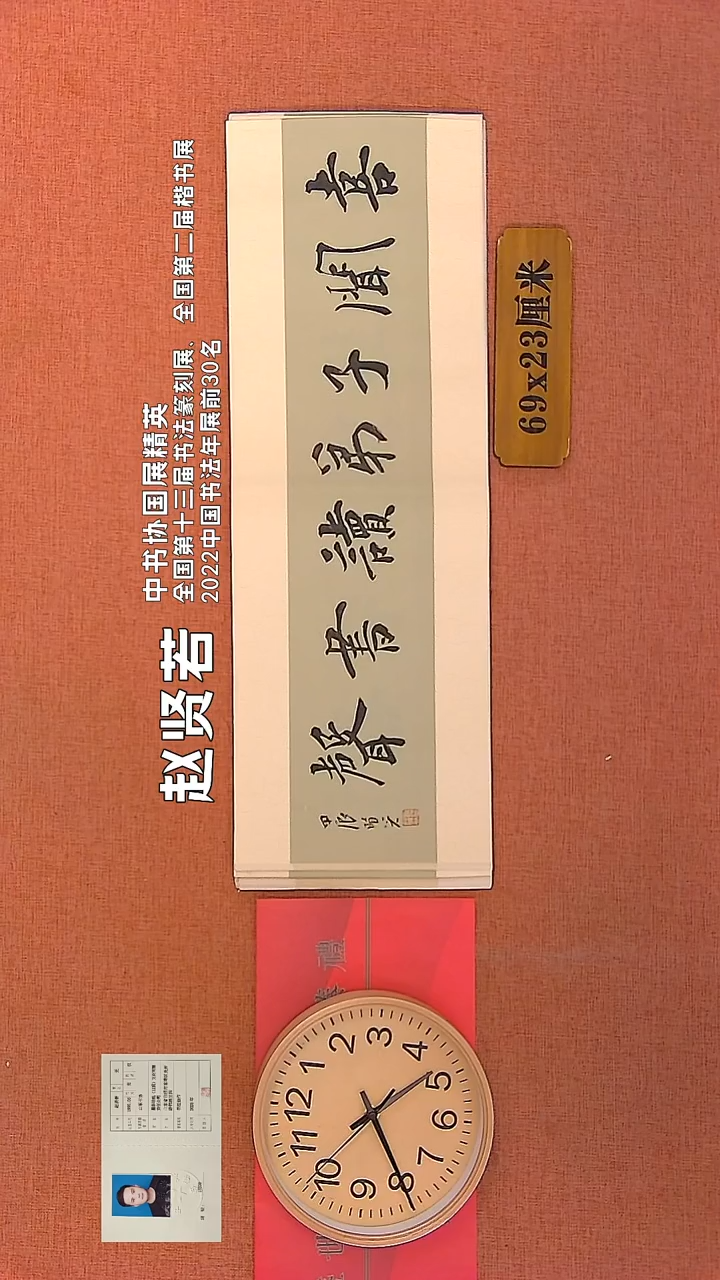 赵贤若
中书协国展精英
全国第十三届书法篆刻展、全国第二届楷书展
2022中国书法年展前30名
喜聞子弟讀書聲
69x23厘米
12
1
2
3
4
5
6
7
8
9
10
11
禮